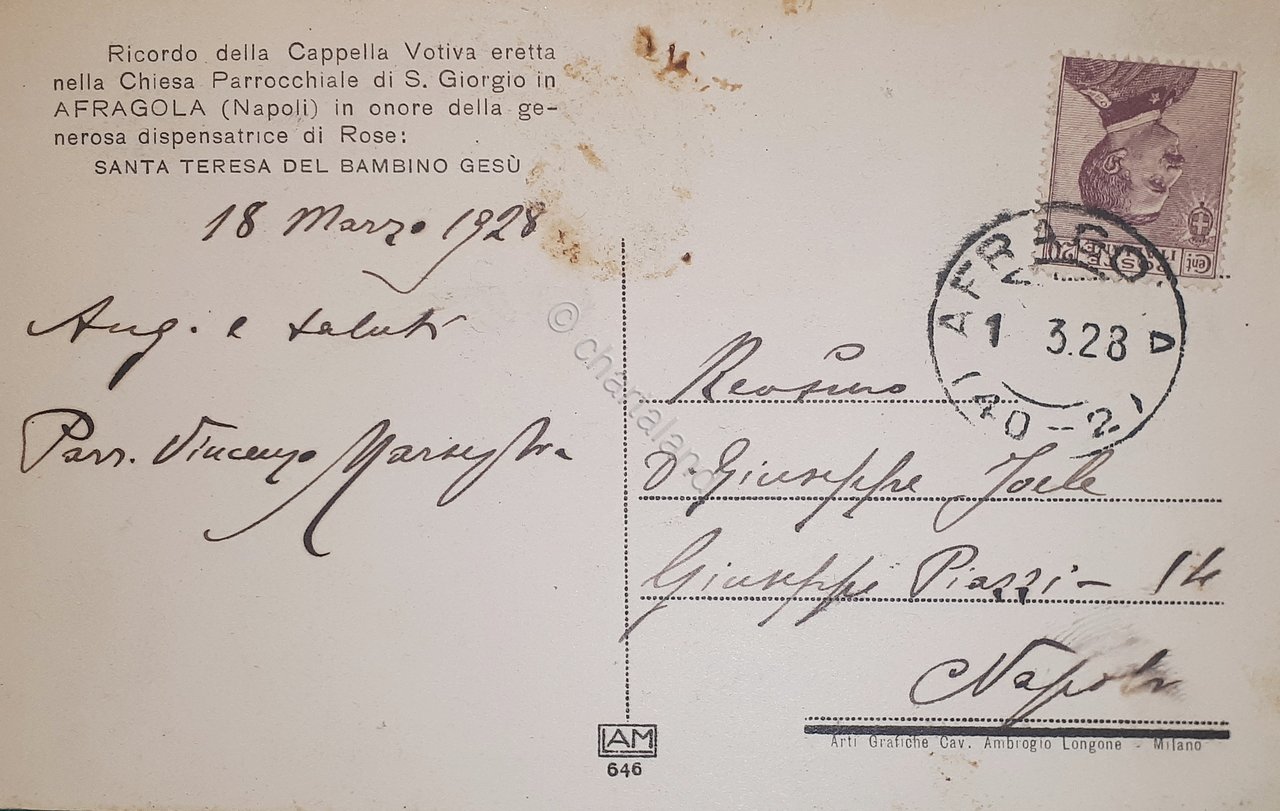 Ricordo della Cappella Votiva eretta
nella Chiesa Parrocchiale di S. Giorgio in
AFRAGOLA (Napoli) in onore della ge-
nerosa dispensatrice di Rose:
SANTA TERESA DEL BAMBINO GESÙ
18 Marzo 1928
Aug. e saluti
Parr. Vincenzo Marseglia
© chartaland
AFRAGO
1 3.28
(40-2)
POSTE ITALIANE
Cent 20
D. Giuseppe Joele
Giuseppe Piazzi - 14
Napoli
Arti Grafiche Cav. Ambrogio Longone - Milano
LAM
646